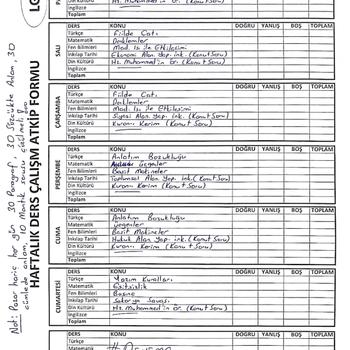 Not: Pazar hariç her gün 30 Paragraf, 30 Sözcükte Anlam, 30
cümlede anlam, 10 Mantık sorusu çözülmeli
HAFTALIK DERS ÇALIŞM ATKİP FORMU
Din Kültürü Hz. Muhammed'in ör. (Konut Soru)
İngilizce
Toplam
DERS KONU DOĞRU YANLIŞ BOŞ TOPLAM
SALI
Türkçe Fiilde Çatı
Matematik Özdeşlikler
Fen Bilimleri Mad. Isı ile Etkileşimi
İnkılap Tarihi Ekonomi Alan. Yap. ink. (Konut Soru)
Din Kültürü Hz. Muhammed'in ör. (Konut Soru)
İngilizce
Toplam
DERS KONU DOĞRU YANLIŞ BOŞ TOPLAM
ÇARŞAMBA
Türkçe Fiilde Çatı
Matematik Özdeşlikler
Fen Bilimleri Mad. Isı ile Etkileşimi
İnkılap Tarihi Siyasi Alan Yap. ink. (Konut Soru)
Din Kültürü Kuran-ı Kerim (Konut Soru)
İngilizce
Toplam
DERS KONU DOĞRU YANLIŞ BOŞ TOPLAM
PERŞEMBE
Türkçe Anlatım Bozukluğu
Matematik Üçgenler
Fen Bilimleri Basit Makineler
İnkılap Tarihi Toplumsal Alan. Yap. ink. (Konut Soru)
Din Kültürü Kuran-ı Kerim (Konut Soru)
İngilizce
Toplam
DERS KONU DOĞRU YANLIŞ BOŞ TOPLAM
CUMA
Türkçe Anlatım Bozukluğu
Matematik Üçgenler
Fen Bilimleri Basit Makineler
İnkılap Tarihi Hukuk Alan. Yap. ink. (Konut Soru)
Din Kültürü Kuran-ı Kerim (Konut Soru)
İngilizce
Toplam
DERS KONU DOĞRU YANLIŞ BOŞ TOPLAM
CUMARTESİ
Türkçe Yazım Kuralları
Matematik Eşitsizlik
Fen Bilimleri Basınç
İnkılap Tarihi Sakarya Savaşı
Din Kültürü Hz. Muhammed'in ör. (Konut Soru)
İngilizce
Toplam
DERS KONU DOĞRU YANLIŞ BOŞ TOPLAM
Türkçe
Matematik